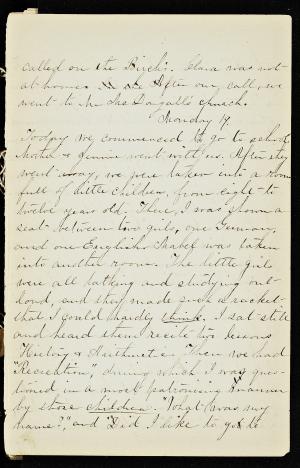 called on the Birch. Clara was not
at home. After our call, we
went to Mr Jas Dougall's church.
Monday 17
Today we commenced to go to school.
Mother & Gimmie went with us. After they
went away, we were taken into a room
full of little children, from eight to
twelve years old. There, I was shown a
seat between two girls, one German,
and one English. Mabel was taken
into another room. The little girls
were all talking and studying out
loud, and they made such a racket
that I could hardly think. I sat still
and heard them recite two lessons
History & Arithmetic. Then we had
"Recreation", during which I was ques-
tioned in a most patronising manner
by those children. "What was my
name?", and "Did I like to go to